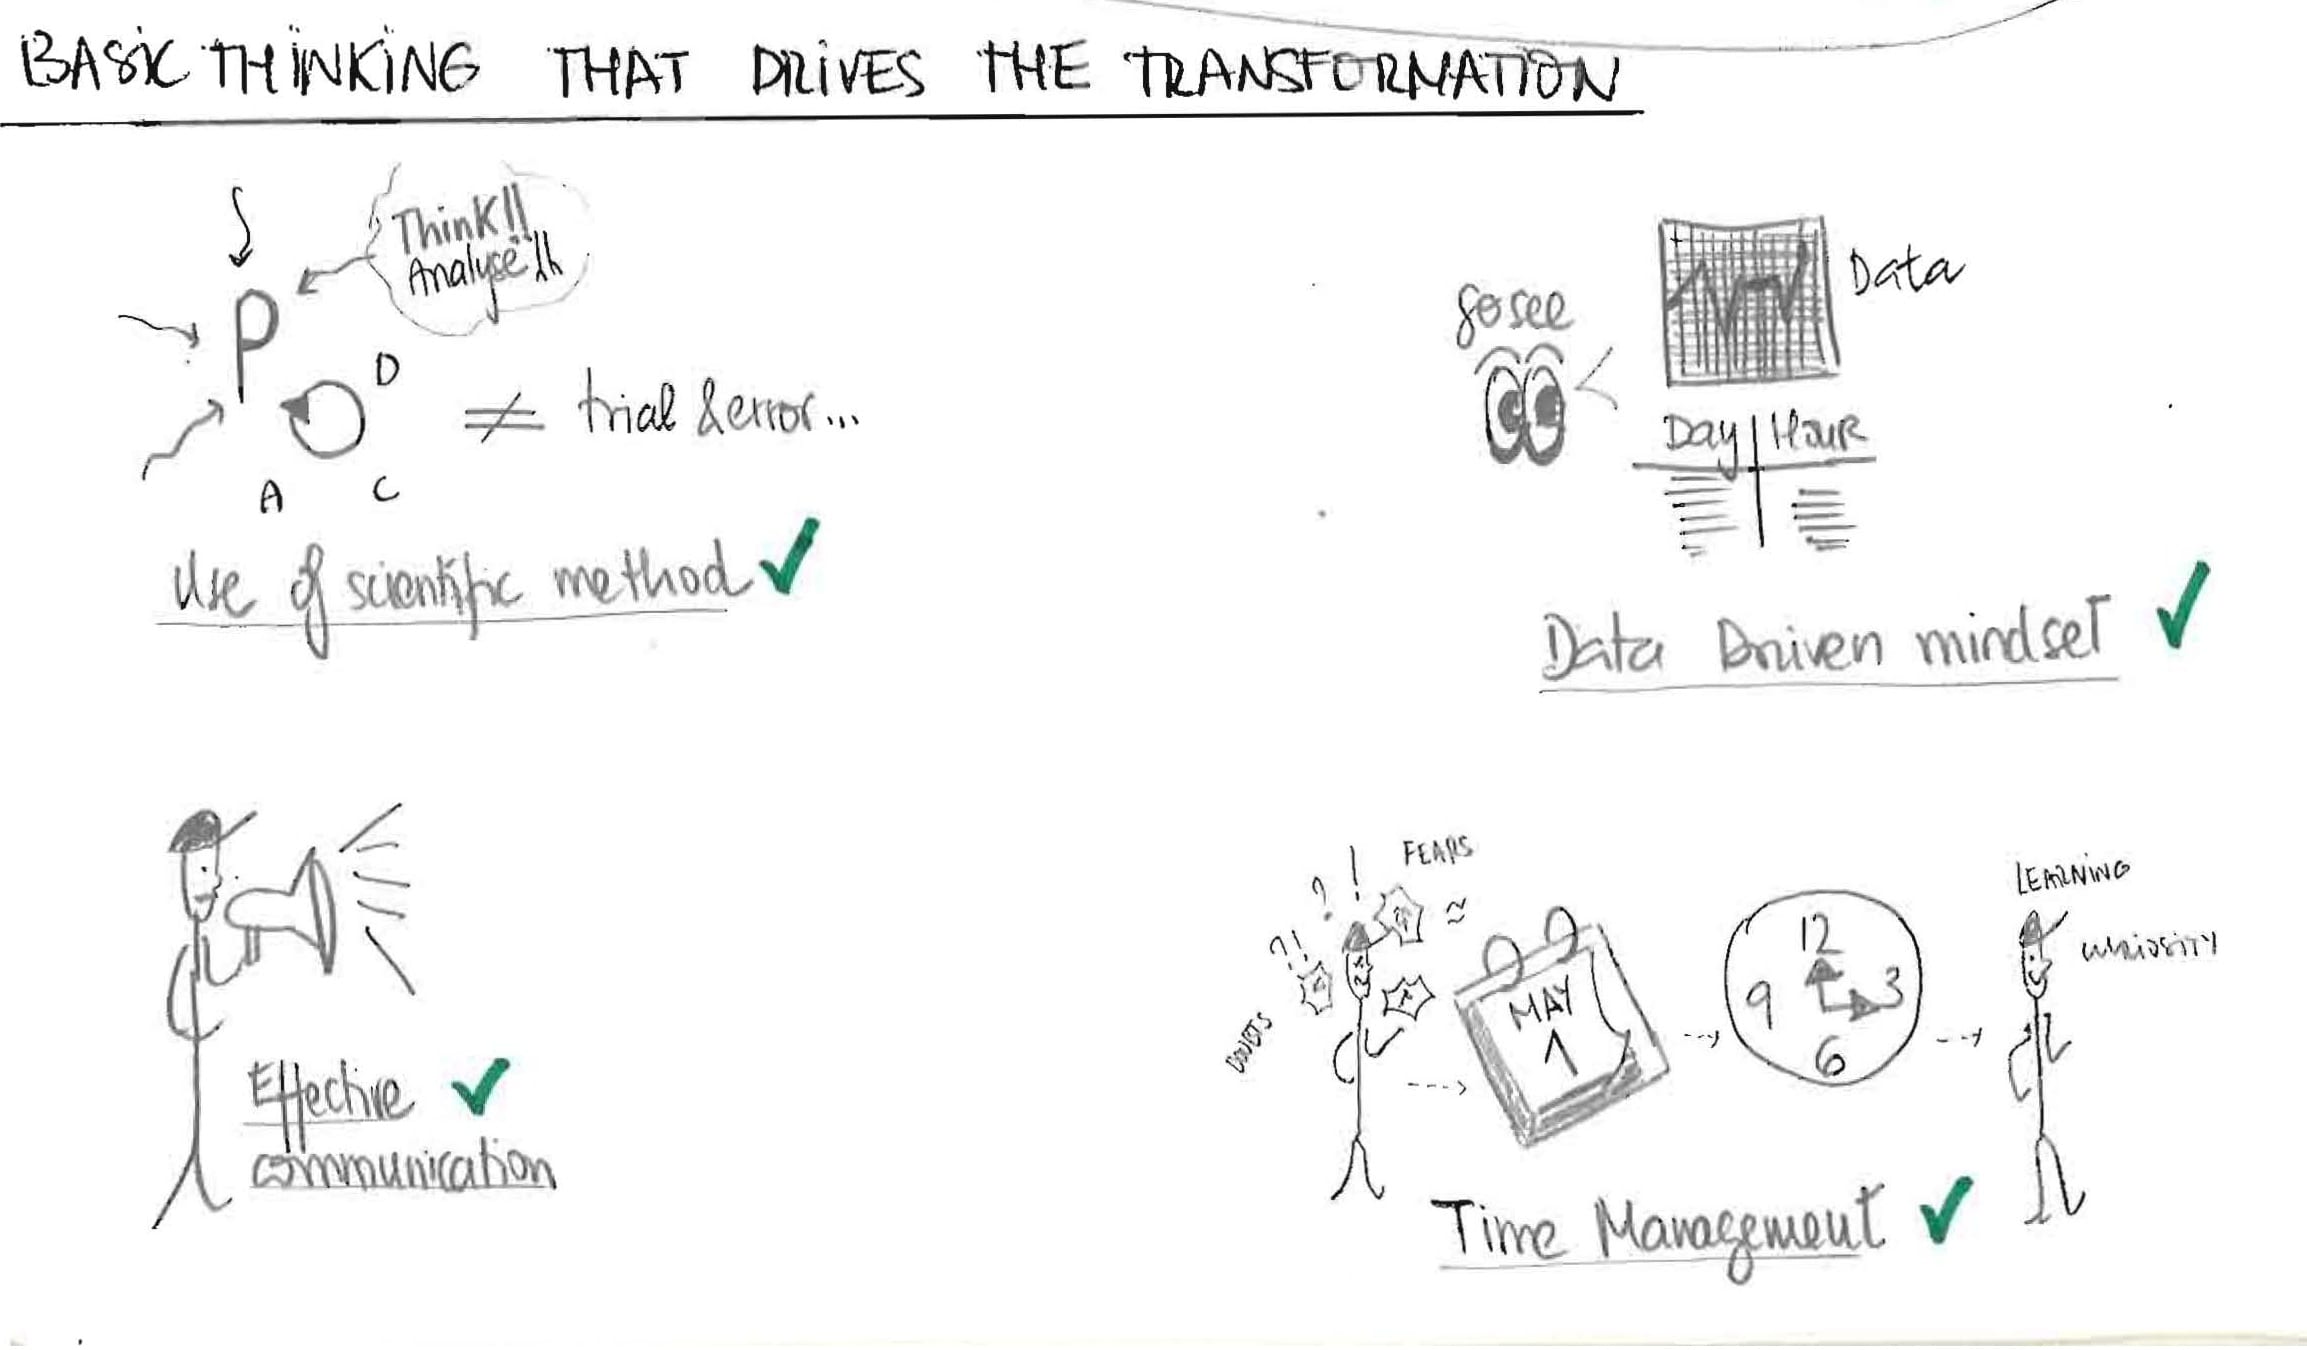 BASIC THINKING THAT DRIVES THE TRANSFORMATION
Think!!
Analyse!!
P
D
A
C
≠ trial & error...
Use of scientific method ✓
go see
Data
Day | Hour
Data Driven mindset ✓
Effective ✓
communication
FEARS
? !
?!
DOUBTS
MAY
1
12
9
3
6
LEARNING
CURIOSITY
Time Management ✓